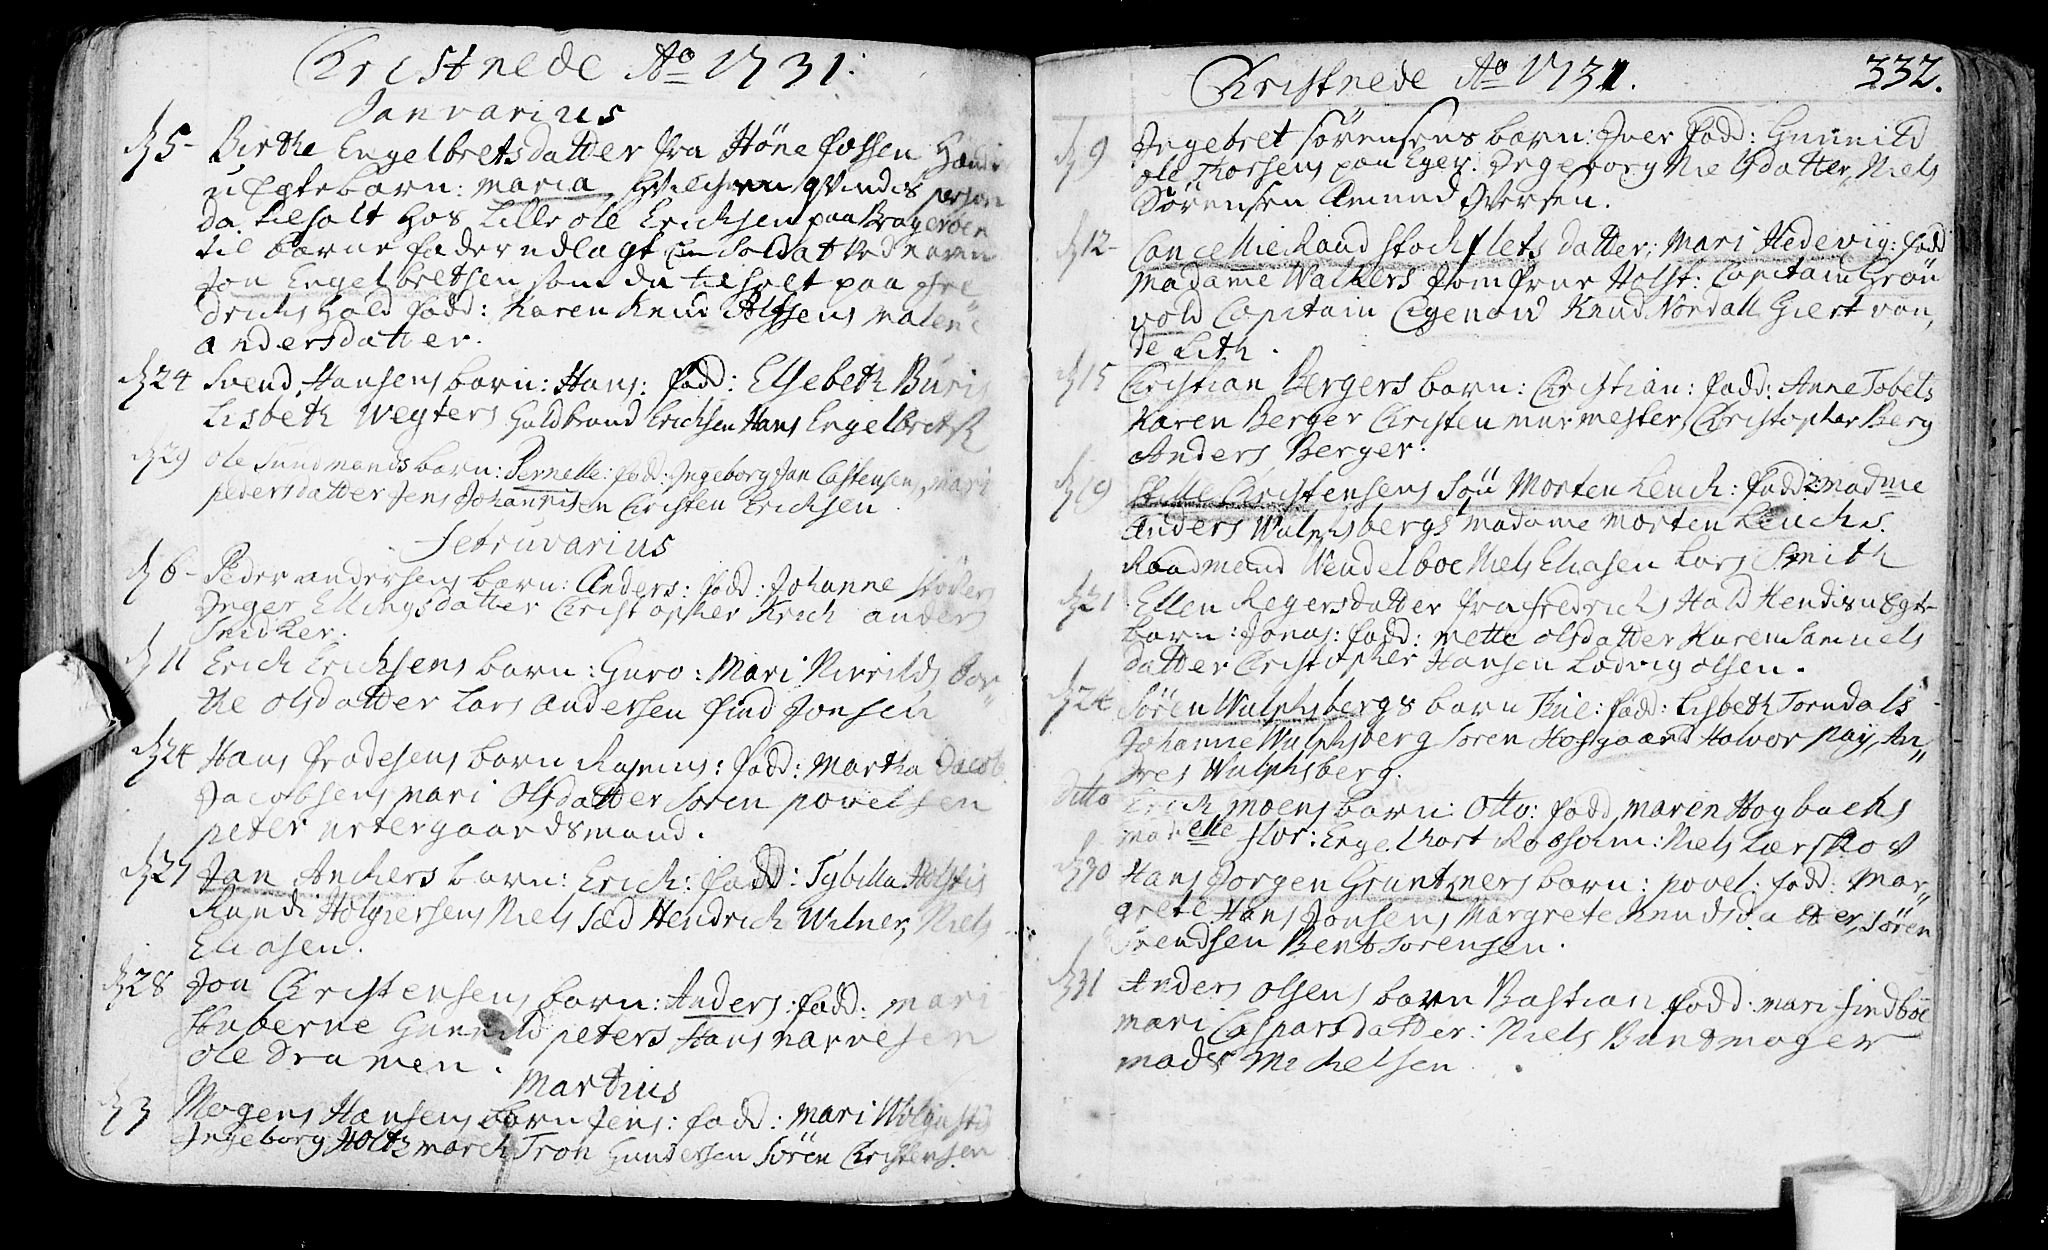 Kristnede Aº 1731.
Januarius
5- Birthe Engelbretsdatter fra Höne fossen Hendis
u Egte barn: Maria, hvilchen qvindis person
da tilholt hos Lille ole Erichsen paa Bragerøen
til barne fader udlagt en Soldat ved navn
Jon Engelbretsen som da tilholt paa Fre
drichs Hald fadd: Karen Knud Alfsens Malene
andersdatter.
24 Svend Hansens barn: Hans: fadd: Elsebeth Buris
Lisbeth Wegters Guldbrand Erichsen Hans Engelbrets
29 ole Sundmands barn: Pernelle: fadd: Ingeborg Jan Castensens, mari
pedersdatter Jens Johannisen Christen Erichsen.
Februvarius
6- Peder andersens barn: Anders: fadd: Johanne
Inger Ellingsdatter Christopher Krich anders
Snidker.
11 Erich Erichsens barn: Guro: Mari Nirrilds Bor-
the olsdatter Lars andersen find Jonsen
24 Hans frodesens barn Rasmus: fadd: Martha Jacob
Jacobsens mari Olsdatter Soren povelsen
peter urtegaardsmand.
27 Jan Anchers barn: Erich: fadd: Sybilla Holstis
Randi Holgiersens Niels Sæd Hendrich Wilner, Niels
Eliasen.
28 Jon Christensens barn: Anders: fadd: mari
Gunnild peters Hans narvesen
ole Dramen.
Martius
3 Mogens Hansens barn Jens: fadd: Mari
Ingeborg Holtzmarch Tron Gundersen Sören Christensen
Kristnede Aº 1731. 332.
9 Ingebret sörensens barn: Iver fadd: Gunnild
ole Thorsens paa Eger. Ingeborg Nielsdatter, Niels
Sörensen Amund Iversen.
12- Cancellie Raad Stochflets datter: Mari Hedevig: fadd
Madame Walkers Jomfrue Holst: Capitain Grön
vold Capitain Eigenvid Knud Nordall Giert van,
de Lith.
15 Christian Bergers barn: Christian: fadd: Anne Tobets
Karen Berger Christen murmester, Christopher Berg
Anders Berger.
19 Christensens Sön Morten Leuch: fadd: madme
Anders Wulphsbergs madame Morten Leuchs.
Raadmand Wendelboe Niels Eliasen Lars Smith
21 Ellen Regersdatter fra Fredrichs Hald Hendis u Egte-
barn: Jonas: fadd: Mette olsdatter Karen Samuels
datter Christopher Hansen Lodvig olsen.
24 Sören Wulphsbergs barn Thue: fadd: Lisbeth Torndals
Johanne Wulphsberg Soren Hofgaard Halvor Pay, An,,
dres Wulphsberg.
ditto Erich moens barn: Otto: fadd, maren Hogbachs
marelle flor: Engelhart Robsohm: Niels Lerskov
30 Hans Jorgen Gruntzners barn: povel: fadd: Mar,,
grete Hans Jonsens Margrete Knudsdatter, Sören
Svendsen Bent Sorensen.
31 Anders olsens barn Bastian fadd: mari findböe
mari Caspersdatter: Niels Bundmager
mads Michelsen.